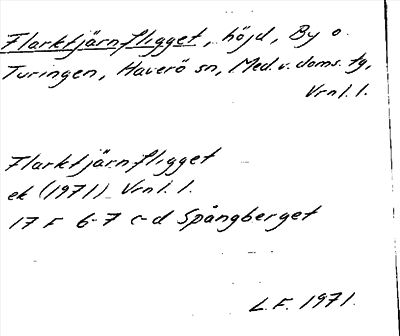 Flarktjärnfligget, höjd, By o.
Turingen, Haverö sn, Med.v. doms. tg,
Vrnl. l.
Flarktjärnfligget
ek (1971) Vrnl. l.
17 F 6-7 c-d Spångberget
L.F. 1971.